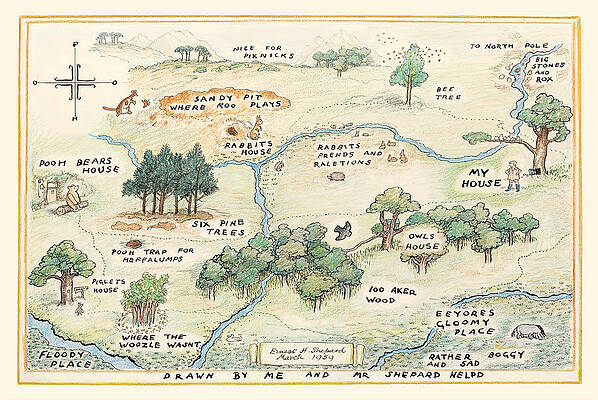 NICE FOR
PIKNICKS
TO NORTH POLE
BIG
STONES
AND
ROX
BEE
TREE
SANDY PIT
WHERE ROO PLAYS
RABBITS
HOUSE
RABBITS
FRENDS AND
RALETIONS
POOH BEARS
HOUSE
MY
HOUSE
SIX PINE
TREES
OWLS
HOUSE
POOH TRAP FOR
HEFFALUMPS
PIGLETS
HOUSE
100 AKER
WOOD
EEYORES
GLOOMY
PLACE
WHERE THE
WOOZLE WASNT
FLOODY
PLACE
Ernest H. Shepard
March 1959
RATHER BOGGY
AND SAD
DRAWN BY ME AND MR SHEPARD HELPD